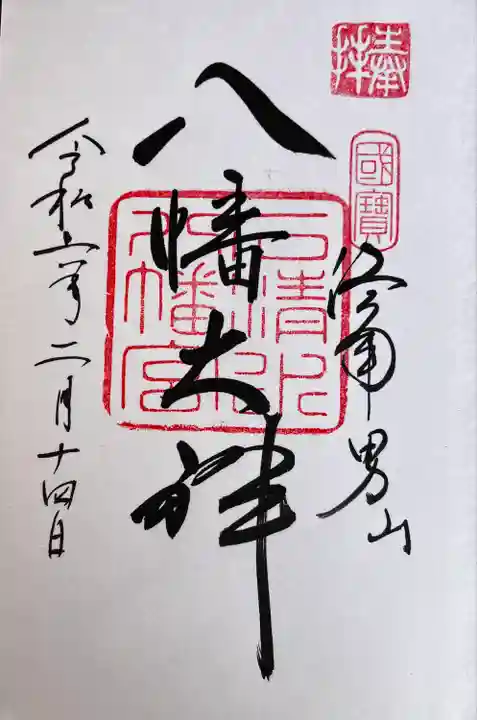 奉拝
國寶
男山
八幡大神
石清水
八幡宮
令和六年二月十四日